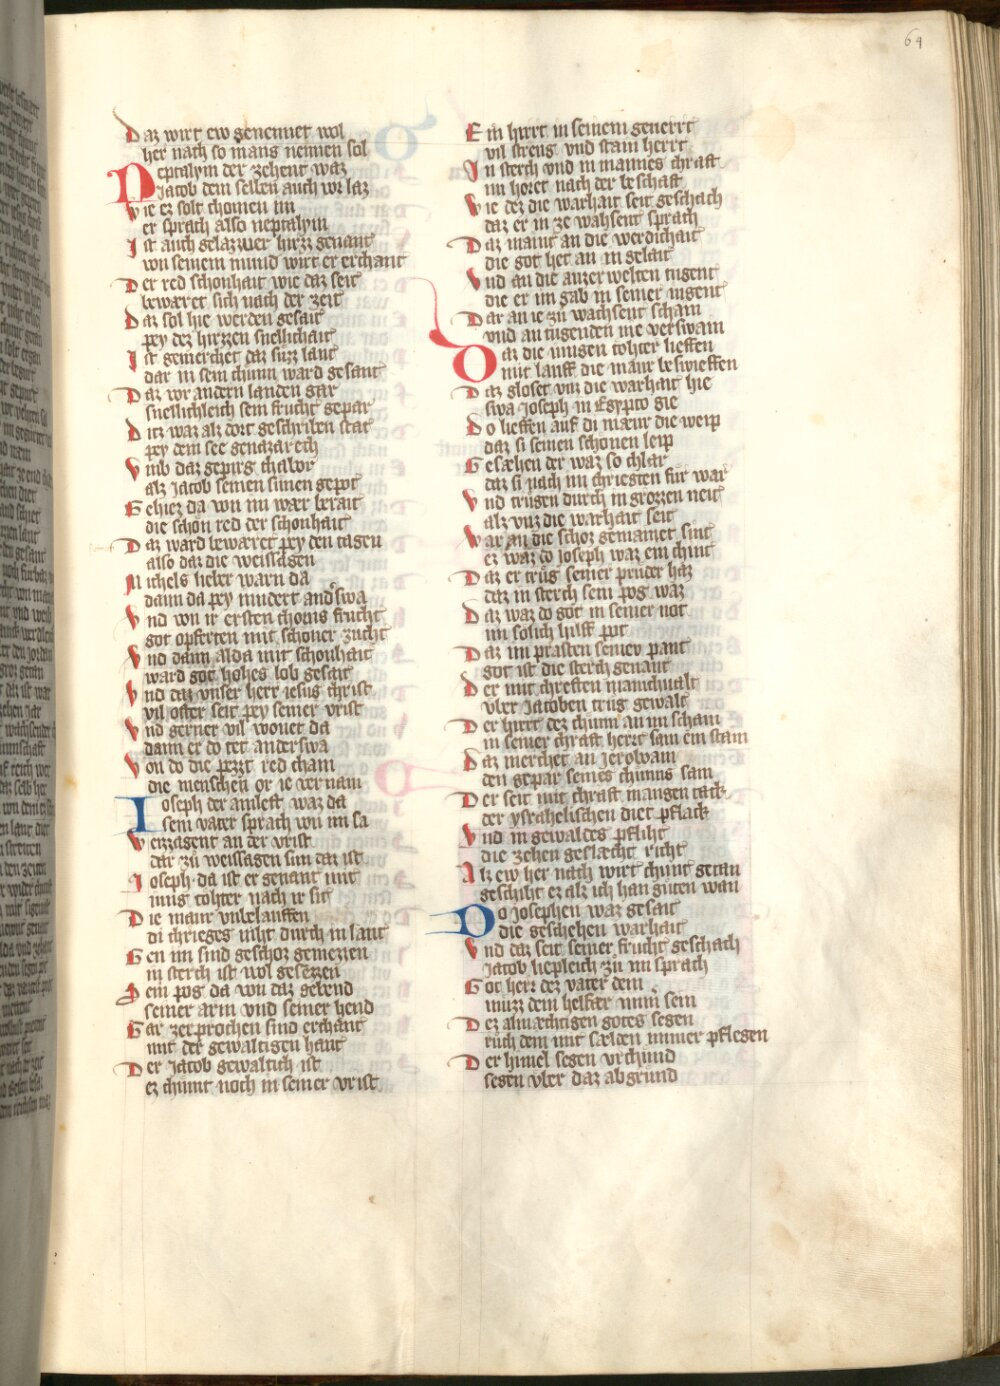 64
Daz wirt ew genennet wol
her nach so mang nennen sol
Neptalym der zehent waz
Jacob dem selben auch vor laz
Wie ez solt chomen im
er sprach also neptalym
Ist auch gelazzner hirzz genant
von seinem mund wirt er erchant
Der red schonhait wie daz seit
bewæret sich nach der zeit
Daz sol hie werden gesait
pey dez hirzzen snellichait
Ist gemerchet daz suzz lant
dar in sein chunn ward gesant
Daz vor andern landen gar
snellichleich sein frucht gepar
Ditz waz alz dort geschriben stat
pey dem see genazareth
Vmb daz gepirg thabor
alz Jacob seinen sunen gepot
Gehiez da von im wær berait
die schon red der schonhait
Daz ward bewæret pey den tagen
also daz die weissagen
Michels lieber warn da
dann da pey nindert anderswa
Vnd von ir ersten chorns frucht
got opferten mit schoner zucht
Vnd dann alda mit schonhait
ward got hohes lob gesait
Vnd daz vnser herr iesus christ
vil ofter seit pey seiner vrist
Vnd gerner vil wonet da
dann er do tet anderswa
Von do die pezzt red cham
die menschen or ie vernam
Joseph der ainleft waz da
sein vater sprach von im sa
Weizzagent an der vrist
dar zu weissagen sun daz ist
Joseph da ist er genant mit
iunig tohter nach ir sit
Die maur vmbelauffen
di chrieges niht durch in laut
Gen im sind geschoz gemezzen
in sterch ist wol gesezzen
Sein pog da von daz gebend
seiner arm vnd seiner hend
Gar zerprochen sind erchant
mit der gewaltigen hant
Der Jacob gewaltich ist
ez chumt noch in seiner vrist
Ein hirrt in seinem geuerrt
vil streng vnd stain herrt
In sterch vnd in mannes chraft
nu horet nach der beschaft
Wie dez die warhait seit geschach
daz er in ze wahsent sprach
Daz maint an die werdichait
die got het an in gelait
Vnd an die auzer welten tugent
die er im gab in seiner iugent
Dar an ie zu wachsent scham
vnd an tugenden nie verswam
Daz die iungen tohter lieffen
mit lauff die maur beswieffen
Daz gloset vnz die warhait hie
swa Joseph in Egypto gie
Do lieffen auf di maeur die weip
daz si seinen schonen leip
Gesæhen der waz so chlar
daz si nach im chriegten fur war
Vnd trugen durch in grozzen neit
alz vnz die warhait seit
War an die schoz gemainet sint
ez waz do Joseph waz ein chint
Daz er trug seiner pruder haz
daz in sterch sein pog waz
Daz waz do got in seiner not
im solich hilff pot
Daz im prasten seinev pant
got ist die sterch genant
Der mit chreften manichualt
vber Jacoben trug gewalt
Der hirrt dez chunn an im scham
in seiner chraft hertt sam ein stain
Daz merchet an Jeroboam
den gepar seines chunns sam
Der seit mit chraft mangen tach
der ysrahelischen diet pflach
Vnd in gewaldes pfliht
die zehen geslæcht richt
Alz ew her nach wirt chunt getan
geschiht ez alz ich han guten wan
Do Josephen waz gesait
die geschehen warhait
Vnd daz seit seiner frucht geschach
Jacob liepleich zu im sprach
Got herr dez vater dein
muzz dein helffer nun sein
Dez almæchtigen gotes segen
ruch dein mit sælden immer pflegen
Der himel segen vrchund
segen vber daz abgrund